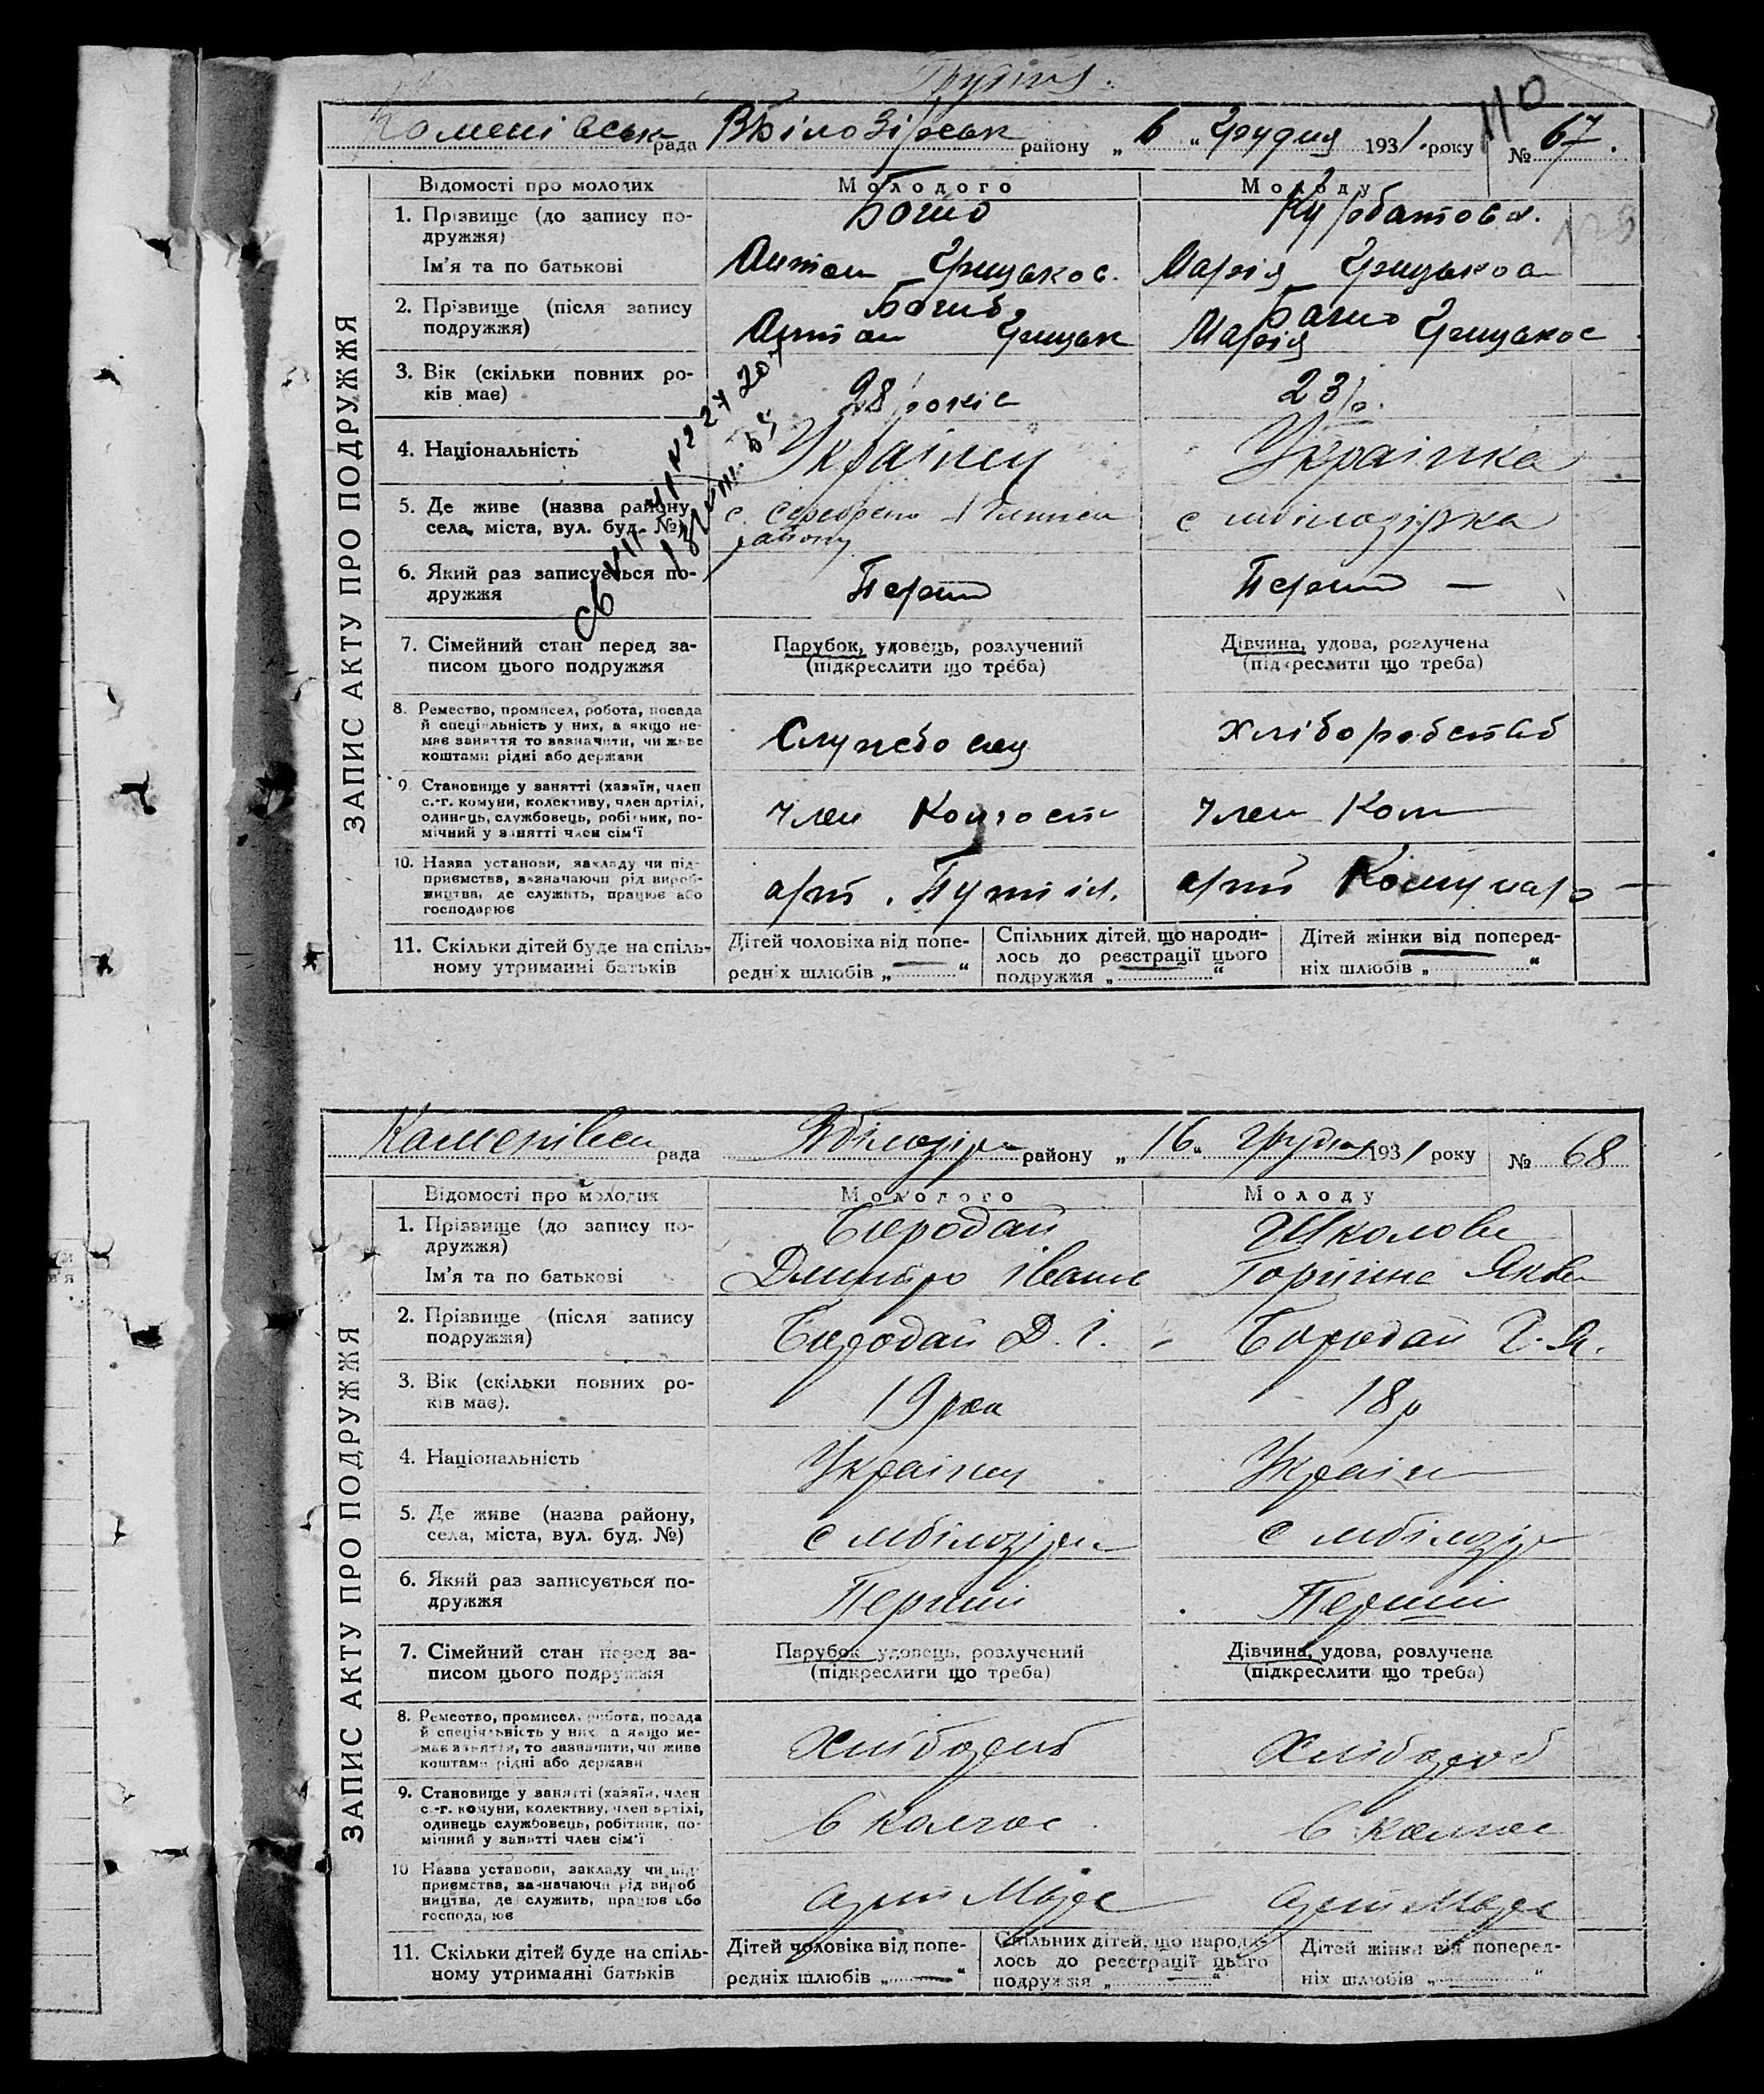 110
Каменівськ рада ВБілозірськ району „ 6 “ Грудня 1931 року № 67.
ЗАПИС АКТУ ПРО ПОДРУЖЖЯ
Відомості про молодих Молодого Молоду
1. Прізвище (до запису по-
дружжя)
Курбатова.
Ім'я та по батькові Антон Грицьков. Марія Грицьков
2. Прізвище (після запису
подружжя)
Антон Грицьк Марія Грицьков
3. Вік (скільки повних ро-
ків має) 28 років 23 р.
4. Національність Українец Українка
5. Де живе (назва району,
села, міста, вул. буд. №) с. району с мбілозірка
6. Який раз записується по-
дружжя Перший Перший —
7. Сімейний стан перед за-
писом цього подружжя
Парубок, удовець, розлучений
(підкреслити що треба)
Дівчина, удова, розлучена
(підкреслити що треба)
8. Ремество, промисел, робота, посада
й спеціяльність у них, а якщо не-
має заняття то зазначити, чи живе
коштами рідні або держави
Службовец хліборобство
9. Становище у занятті (хазяїн, член
с.-г. комуни, колективу, член артілі,
одинець, службовець, робітник, по-
мічний у занятті член сім'ї
член член Ком
10. Назва установи, закладу чи під-
приємства, зазначаючи рід вироб-
ництва, де служить, працює або
господарює
арт. арт Комунар —
11. Скільки дітей буде на спіль-
ному утриманні батьків
Дітей чоловіка від попе-
редніх шлюбів „ — “
Спільних дітей, що народи-
лось до реєстрації цього
подружжя „ — “
Дітей жінки від поперед-
ніх шлюбів „ — “
Каменівськ рада Вбілозірк району „ 16 “ грудня 1931 року № 68
ЗАПИС АКТУ ПРО ПОДРУЖЖЯ
Відомості про молодих Молодого Молоду
1. Прізвище (до запису по-
дружжя)
Бородай Школова
Ім'я та по батькові Дмитро Іванов Горпина Яков
2. Прізвище (після запису
подружжя)
Бородай Д. І. Бородай Г. Я.
3. Вік (скільки повних ро-
ків має). 19 рок 18 р
4. Національність Українец Україн
5. Де живе (назва району,
села, міста, вул. буд. №) с мбілозірк с мбілозір
6. Який раз записується по-
дружжя Перший Перший
7. Сімейний стан перед за-
писом цього подружжя
Парубок удовець, розлучений
(підкреслити що треба)
Дівчина, удова, розлучена
(підкреслити що треба)
8. Ремество, промисел, робота, посада
й спеціяльність у них а якщо не-
має заняття, то зазначити, чи живе
коштами рідні або держави
Хлібороб Хлібороб
9. Становище у занятті (хазяїн, член
с.-г. комуни, колективу, член артілі,
одинець службовець, робітник, по-
мічний у занятті член сім'ї
в колгос. в колгос
10 Назва установи, закладу чи під-
приємства, зазначаючи рід вироб
ництва, де служить, працює або
господарює
арт арт
11. Скільки дітей буде на спіль-
ному утриманні батьків
Дітей чоловіка від попе-
редніх шлюбів „ — “
Спільних дітей, що народи-
лось до реєстрації цього
подружжя „ — “
Дітей жінки від поперед-
ніх шлюбів „ — “